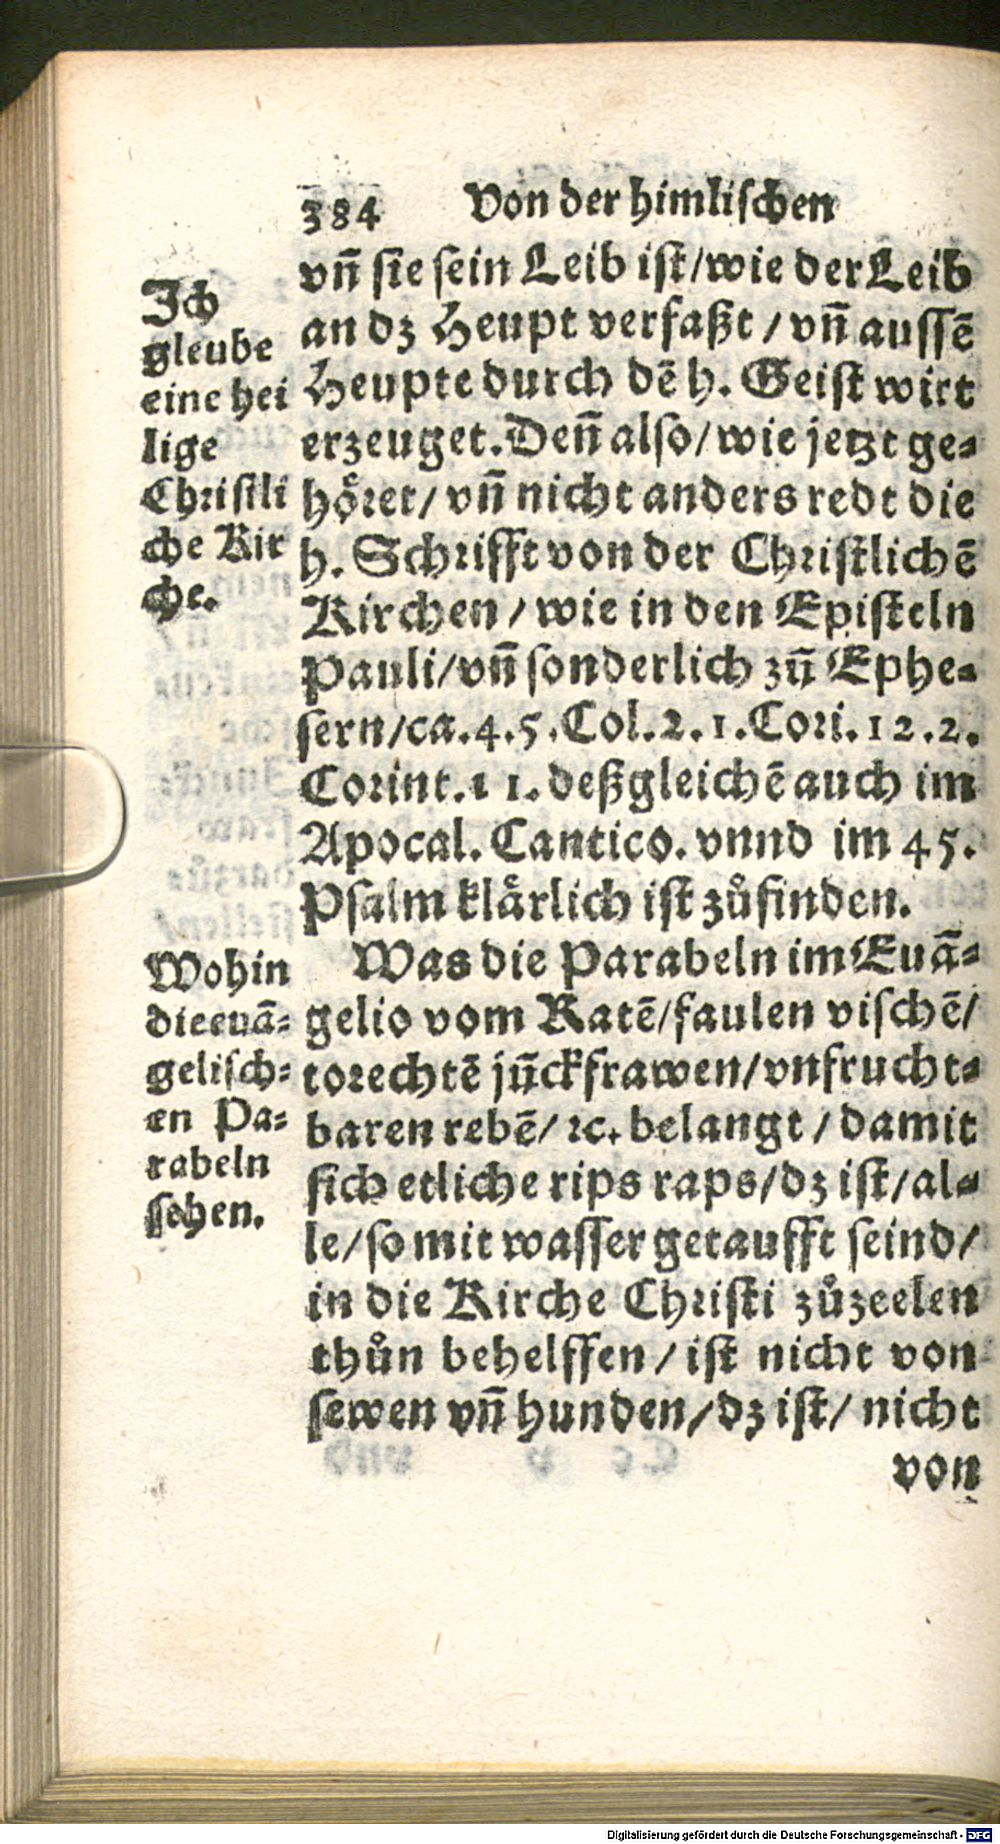 384 Von der himlischen
vñ sie sein Leib ist/wie der Leib
an dz Heupt verfaßt / vñ aussē
Heupte durch dē h. Geist wirt
erzeuget. Deñ also/wie jetzt ge-
hoͤret/ vñ nicht anders redt die
h. Schrifft von der Christlichē
Kirchen / wie in den Episteln
Pauli/vñ sonderlich zū Ephe-
sern/ca.4.5.Col.2.1.Cori.12.2.
Corint.11. deßgleichē auch im
Apocal. Cantico. vnnd im 45.
Psalm klaͤrlich ist zůfinden.
Was die Parabeln im Euā-
gelio vom Ratē/faulen vischē/
torechtē jūckfrawen/vnfrucht-
baren rebē/ ꝛc. belangt / damit
sich etliche rips raps/dz ist/al-
le/so mit wasser getaufft seind/
in die Kirche Christi zůzeelen
thůn behelffen / ist nicht von
sewen vñ hunden/dz ist/ nicht
von
Ich
gleube
eine hei
lige
Christli
che Kir
che.
Wohin
die euā-
gelisch-
en Pa-
rabeln
sehen.
Digitalisierung gefördert durch die Deutsche Forschungsgemeinschaft - DFG